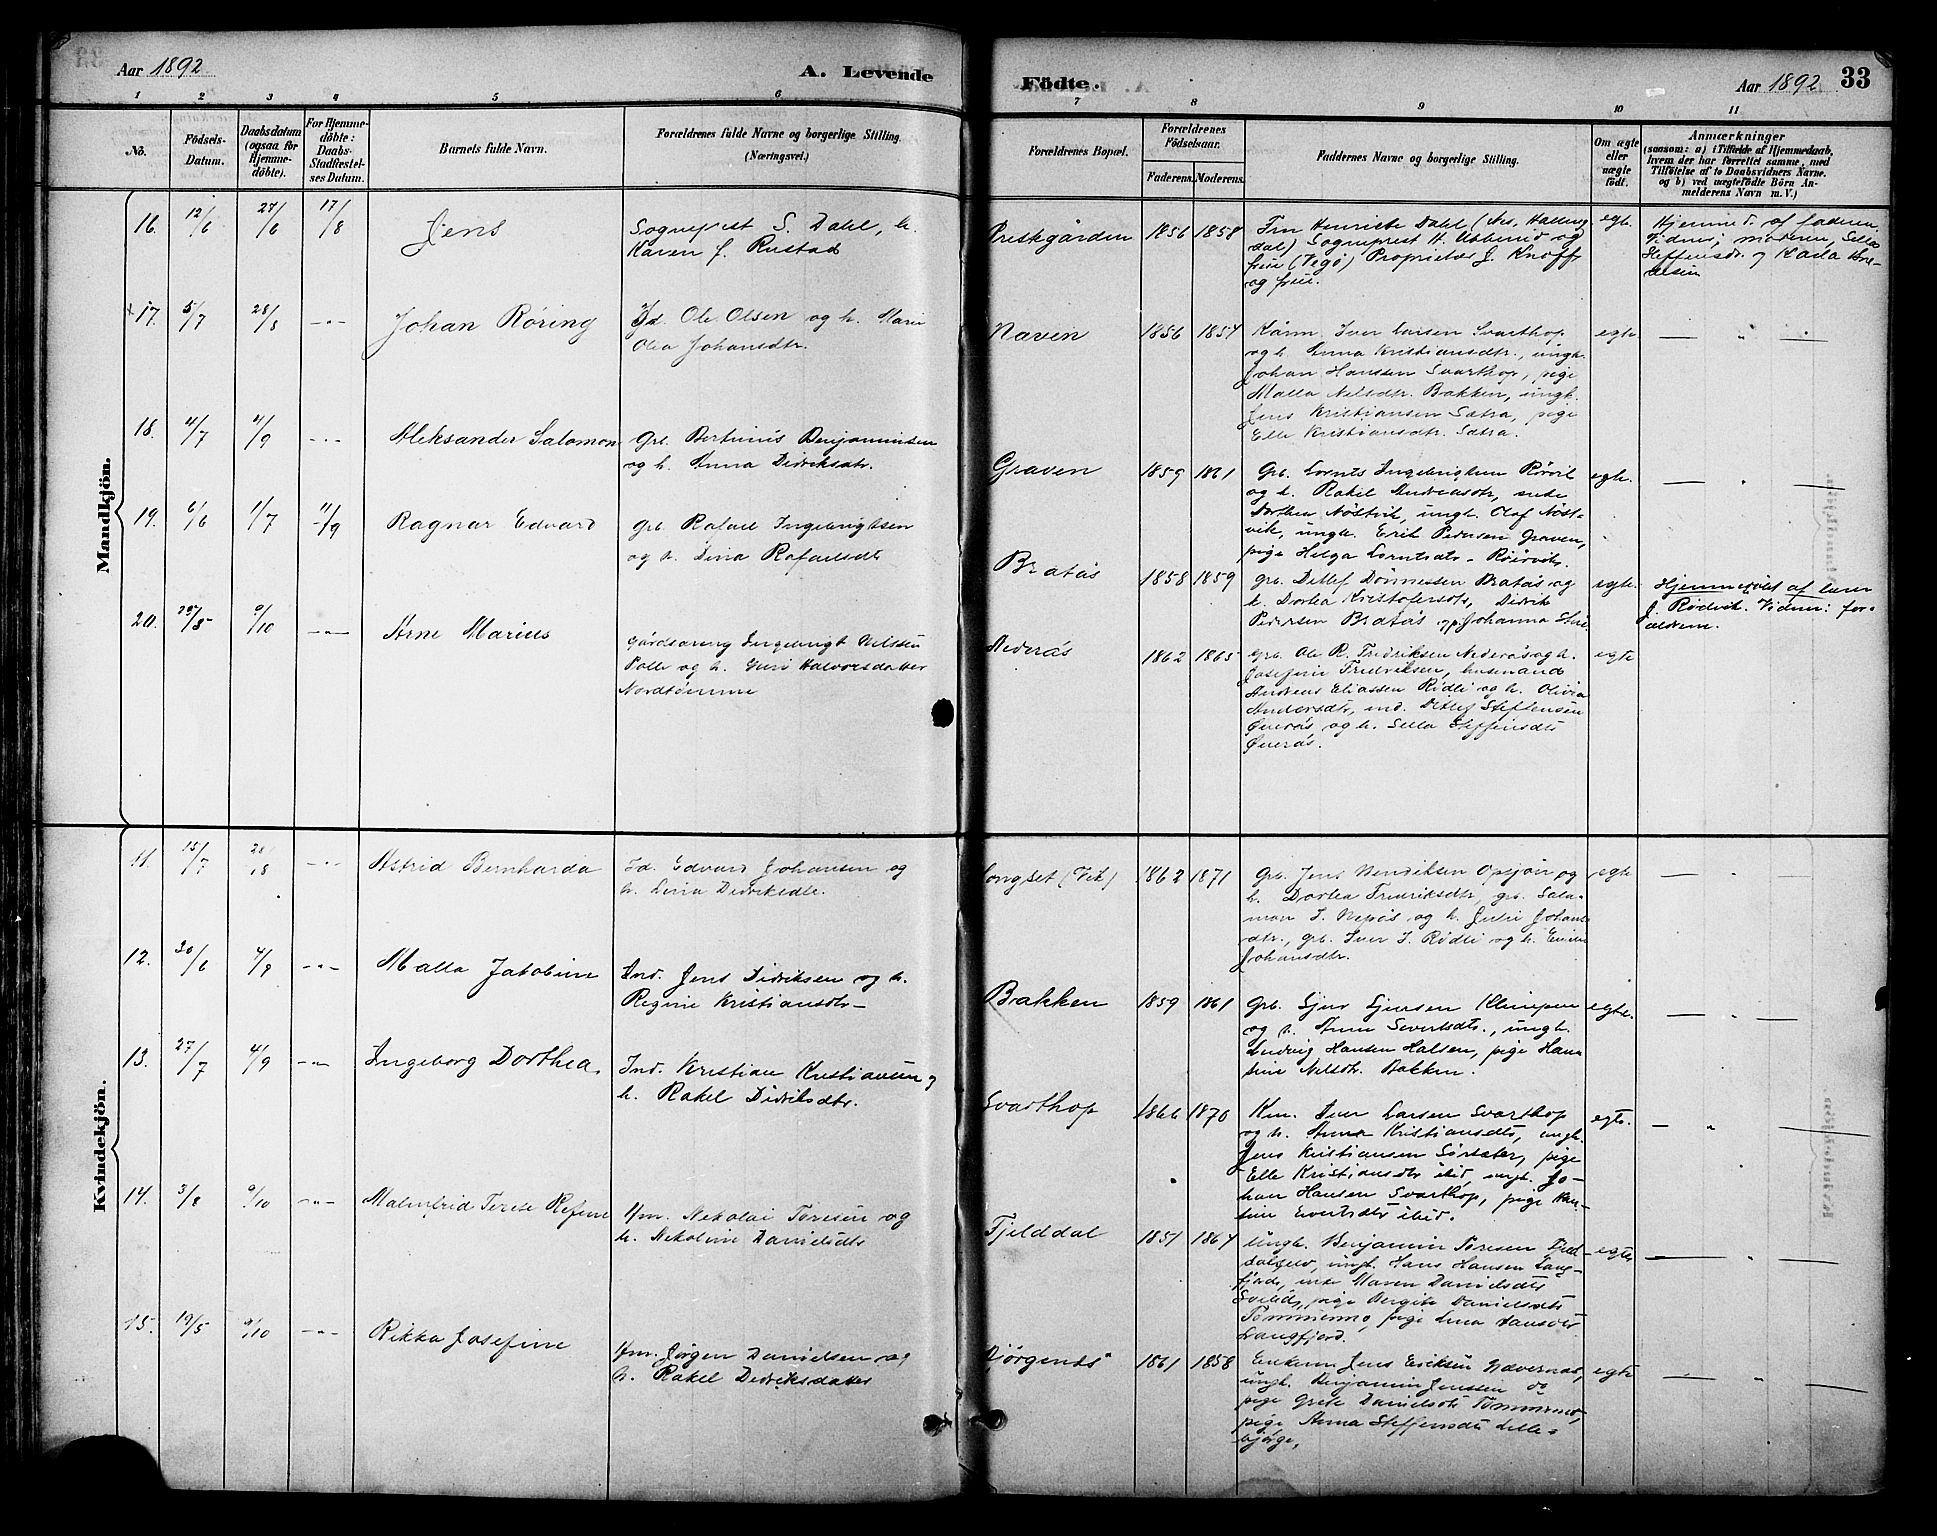 Aar 1892
A. Levende
Födte.
Aar 1892
33
1 2 3 4 5 6 7 8 9 10 11
No.
Födsels-
Datum.
Daabsdatum
(ogsaa for
Hjemme-
döbte).
For Hjemme-
döbte:
Daabs-
Stadfæstel-
ses Datum.
Barnets fulde Navn.
Forældrenes fulde Navne og borgerlige Stilling.
(Næringsvei.)
Forældrenes Bopæl.
Forældrenes
Födselsaar.
Faderens. Moderens.
Faddernes Navne og borgerlige Stilling.
Om ægte
eller
uægte
födt.
Anmærkninger
(saasom: a) i Tilfælde af Hjemmedaab,
hvem der har forrettet samme, med
Tilföielse af to Daabsvidners Navne.
og b) ved uægtefödte Börn An-
melderens Navn m. V.)
Mandkjön.
16. 12/6 27/6 17/8 Jens
Sogneprest S. Dahl, h.
Karen f. Rustad
Prestgården 1856 1858
Fru Henriette Dahl (Nes, Halling-
dal) Sogneprest H. og
frue (Vegø) Proprietær J. Knoff
og frue.
egte
Hjemmed. af faderen.
Vidner; moderen, Sella
Steffensdr. og Karla
17. 5/7 28/8 -"- Johan Røring
Id. Ole Olsen og h. Marie
Olea Johansdtr.
Naven 1856 1857
Kårm. Iver Larsen Svarthop
og h. Anna Kristiansdtr., ungk.
Johan Hansen Svarthop, pige
Malla Nelsdtr. Bakken, ungk.
Jens Kristiansen Sætra, pige
Elle Kristiansdtr. Sætra.
egte
18. 4/7 4/9 -"- Aleksander Salomon
Grb. Bertinus Benjaminsen
og h. Anna Didriksdtr.
Graven 1859 1861
Grb. Lornts Ingebrigtsen Rørvik
og h. Rakel Andreasdtr, enke
Dorthea Nøstvik, ungk. Olaf Nøst-
vik, ungk. Erik Pedersen Graven,
pige Helga Lorntsdtr. Rørvik.
egte.
19. 6/6 1/7 11/9 Ragnar Edvard
Grb. Rafael Ingebrigtsen
og h. Dina Rafaelsdtr
Bratås 1858 1859
grb. Detlef Dønnessen Bratås og
h. Dorthea Kristofersdtr, Didrik
Pedersen Bratås og p. Johanna
egte
Hjemmedøbt af lærer
J. Rødvik. Vidner: for-
ældrene.
20. 29/8 9/10 -"- Arne Marius
Gårdbrug Ingebrigt Nelsen
og h. Guri Halvorsdatter
Nordtømme
Nederås 1862 1865
Grb. Ole R. Fredriksen Nederås og h.
Josefine Fredriksen, husmand
Andreas Eliassen Rødli og h. Olivia
Andersdtr, ind. Ditlef Steffensen
Øverås, og h. Sella Steffensdtr
Øverås.
egte
Kvindekjön.
11. 15/7 28/8 -"- Astrid Bernharda
Id. Edvard Johansen og
h. Lina Didriksdtr.
Longset (Vik) 1862 1871
Grb. Jens Hendriksen Opsjøn og
h. Dorthea Fredriksdtr, grb. Salo-
mon J. Nepås og h. Julie Johans-
dtr., grb. Iver J. Rødli og h.
Johansdtr.
egte
12. 30/6 4/9 -"- Malla Jakobine
Ind. Jens Didriksen og h.
Regine Kristiansdtr
Bakken 1859 1861
Grb. Sjur Sjursen Klimpen
og h. Anne Sivertsdtr., ungk.
Ludvig Hansen Halsen, pige Han-
sine Nelsdtr. Bakken.
egte.
13. 27/7 4/9 -"- Ingeborg Dorthea.
Ind. Kristian Kristiansen og
h. Rakel Didriksdtr.
Svarthop 1866 1870
Km. Iver Larsen Svarthop
og h. Anna Kristiansdtr, ungk.
Jens Kristiansen Sørsæter, pige
Elle Kristiansdtr ibid, ungk. Jo-
han Hansen Svarthop, pige Han-
sine Evertsdtr ibid.
egte.
14. 3/8 9/10 -"- Malmfrid Terese Refine
Hm. Nekolai Toresen og
h. Nekoline Danielsdtr
Fjelddal 1851 1864
Ungk. Benjamin Toresen Fjeld-
dalselv, ungk. Hans Hansen Lang-
fjord, enke Maren Danielsdtr
pige Bergite Danielsdtr
Tømmermo, pige Lina Hansdtr
Langfjord.
egte
15. 19/5 9/10 -"- Rikka Josefine
Hm. Jørgen Danielsen og
h. Rakel Dedriksdatter
Bjørgends 1861 1858
Enkem. Jens Eriksen Nævernes,
ungk. Benjamin Jenssen do
pige Grete Danielsdtr Tømmermo,
pige Anna Steffensdtr Lille-
bjørge,
egte